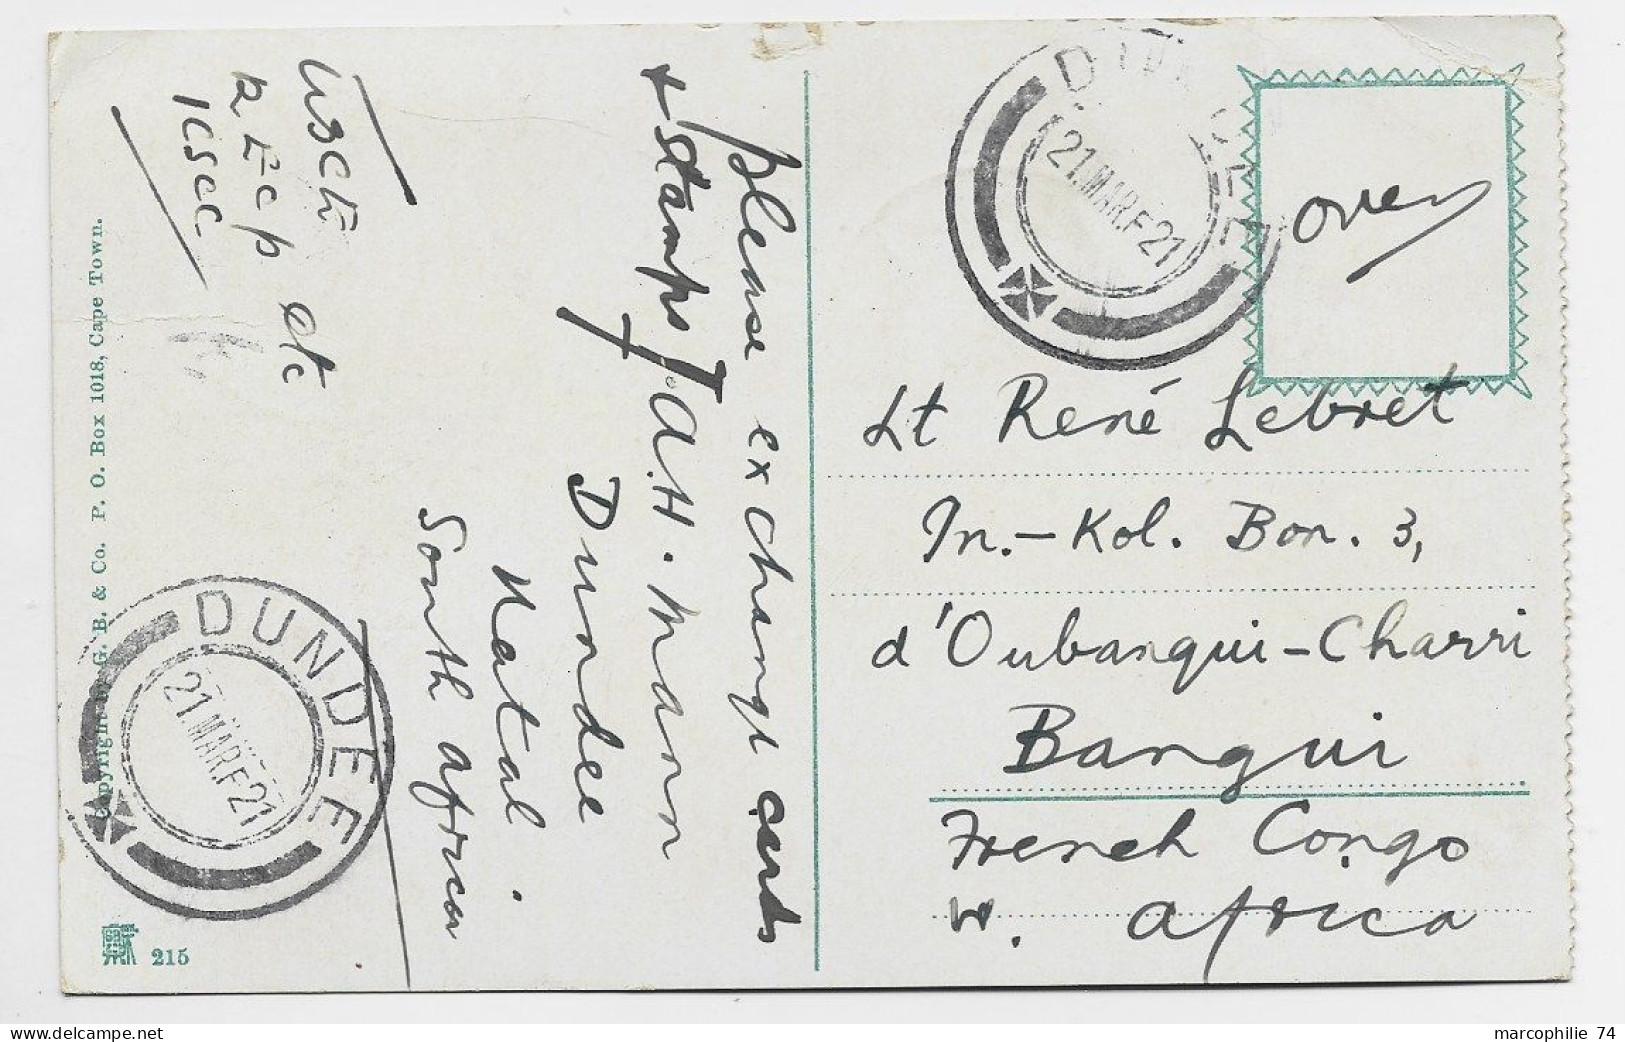 please exchange cards
+ stamps
J. A. H. Mann
Dundee
Natal.
South Africa
etc
Copyright G. B. & Co. P. O. Box 1018, Cape Town.
215
DUNDEE
21.MAR.F21
DUNDEE
21.MAR.F21
over
Lt René Lebret
In.-Kol. Bon. 3,
d'Oubangui-Charri
Bangui
French Congo
W. Africa
marcophilie 74